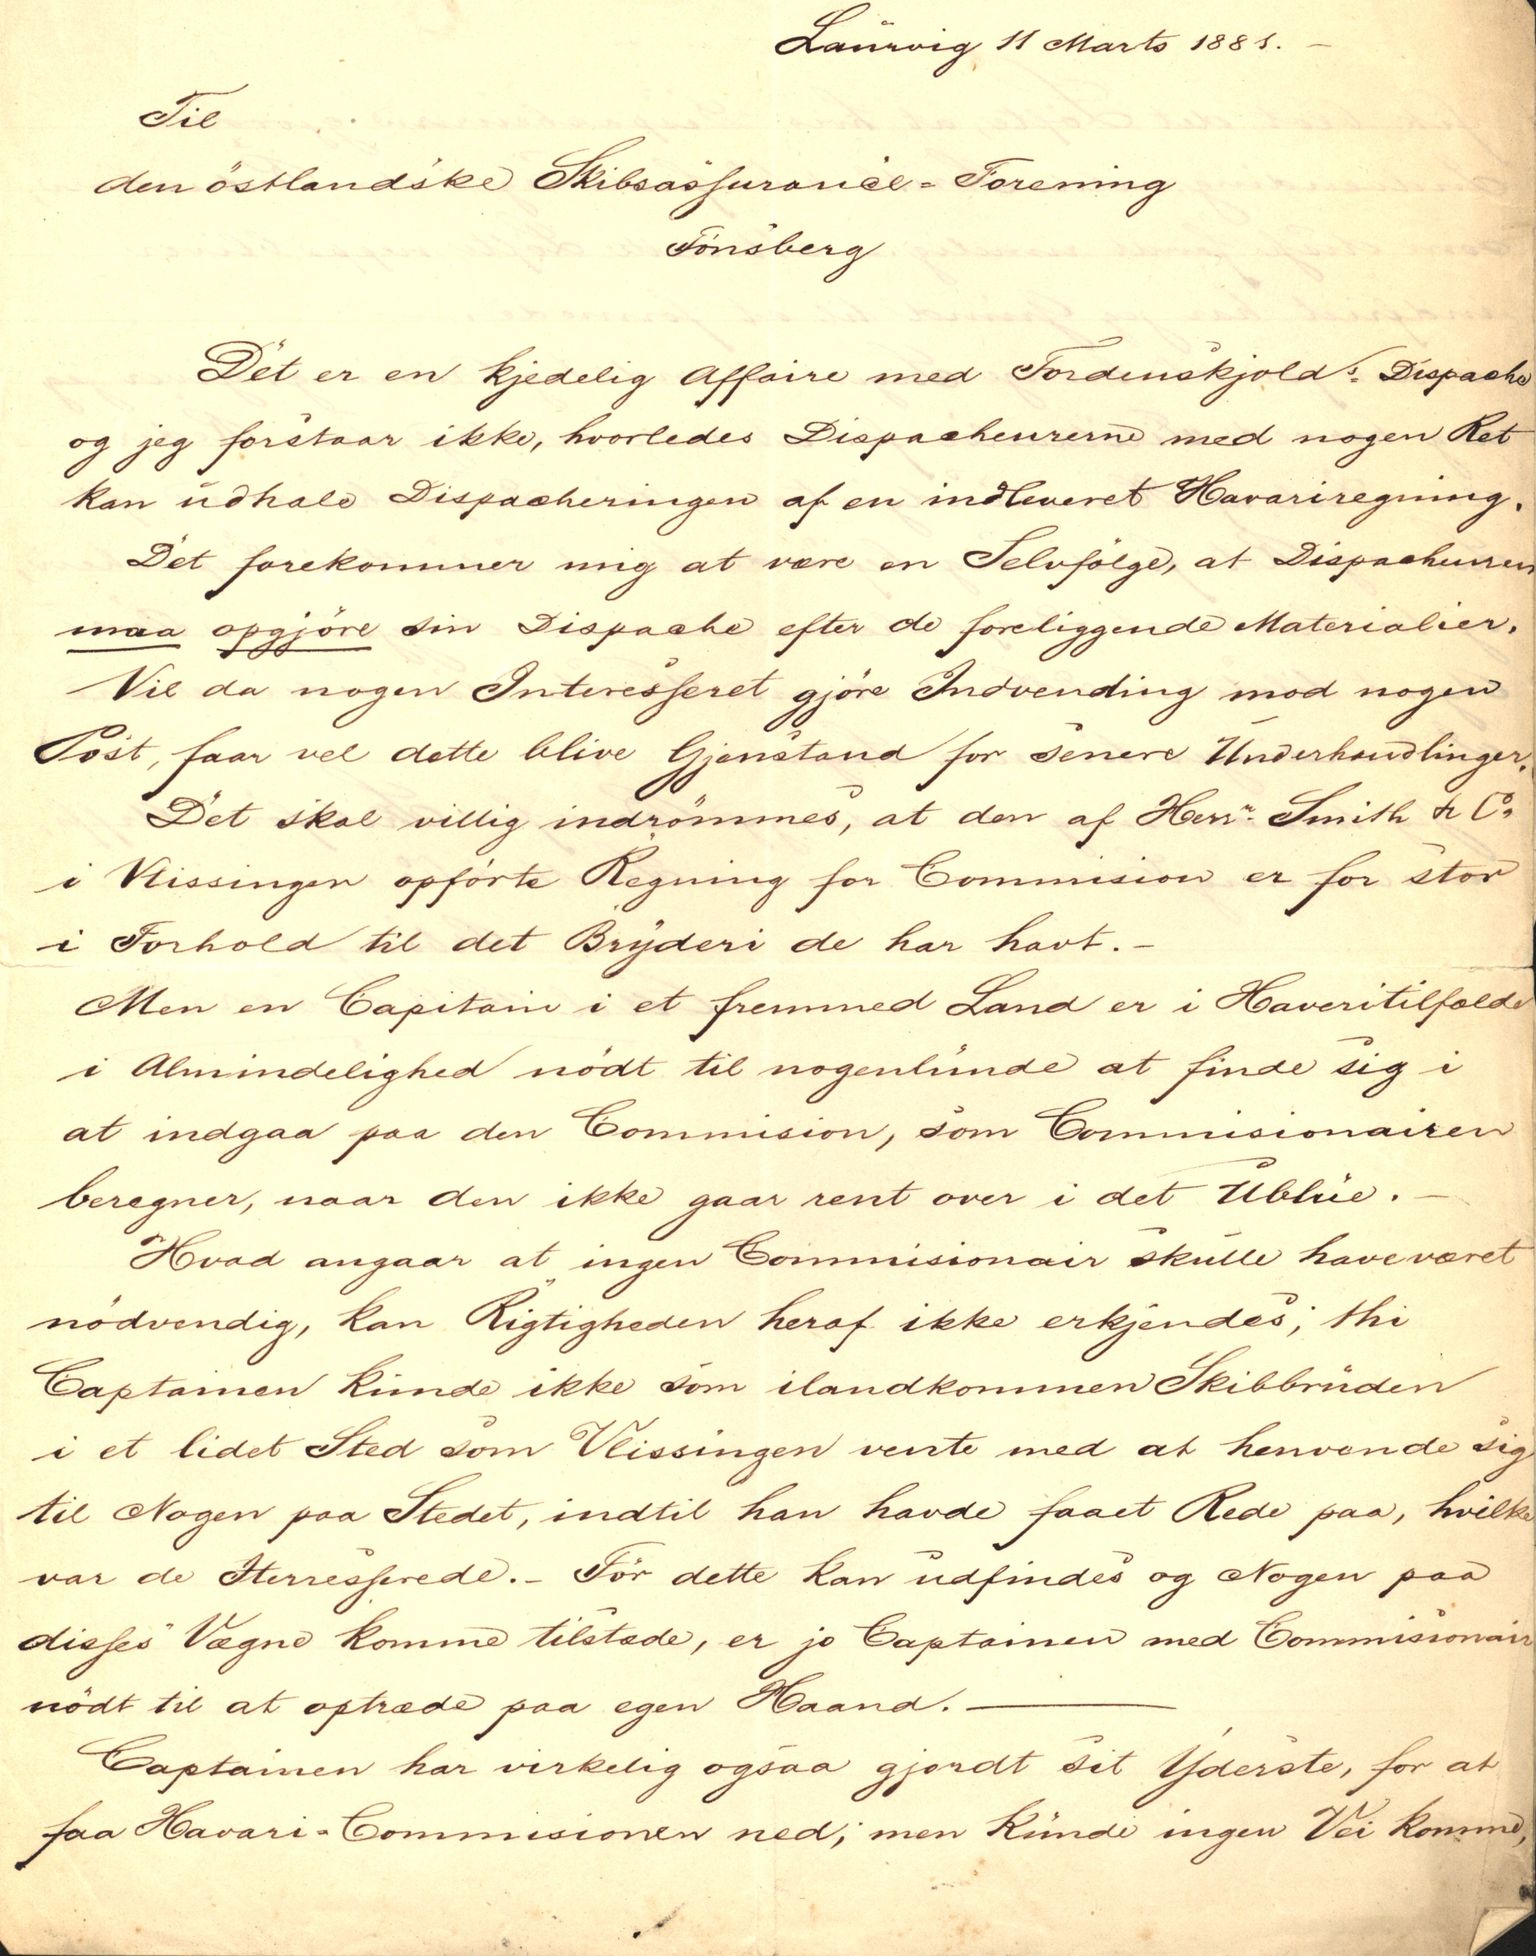 Laurvig 11 Marts 1881. –
Til
den östlandske Skibsassurance-Forening
Tönsberg
Det er en kjedelig Affaire med Tordenskjolds. Dispache
og jeg forstaar ikke, hvorledes Dispacheurerne med nogen Ret
kan udhale Dispacheringen af en indleveret Havariregning.
Det forekommer mig at være en Selvfölge, at Dispacheuren
maa opgjöre sin Dispache efter de foreliggende Materialier.
Vil da nogen Interesseret gjöre Indvending mod nogen
Post, faar vel dette blive Gjenstand for senere Underhandlinger.
Det skal villig indrömmes, at den af Herr. Smith & Co
i Vlissingen opförte Regning for Commision er for stor
i Forhold til det Bryderi de har havt. –
Men en Capitain i et fremmed Land er i Haveritilfælde
i Almindelighed nödt til nogenlunde at finde sig i
at indgaa paa den Commision, som Commisionairen
beregner, naar den ikke gaar rent over i det Ublue. –
Hvad angaar at ingen Commisionair skulle have været
nödvendig, kan Rigtigheden heraf ikke erkjendes; thi
Captainen kunde ikke som ilandkommen Skibbruden
i et lidet Sted som Vlissingen vente med at henvende sig
til Nogen paa Stedet, indtil han havde faaet Rede paa, hvilke
var de Iterresserede. – För dette kan udfindes og Nogen paa
disses Vægne komme tilstæde, er jo Captainen med Commisionair
nödt til at optræde paa egen Haand. –
Captainen har virkelig ogsaa gjordt sit Yderste, for at
faa Havari-Commisionen ned; men kunde ingen Vei komme,